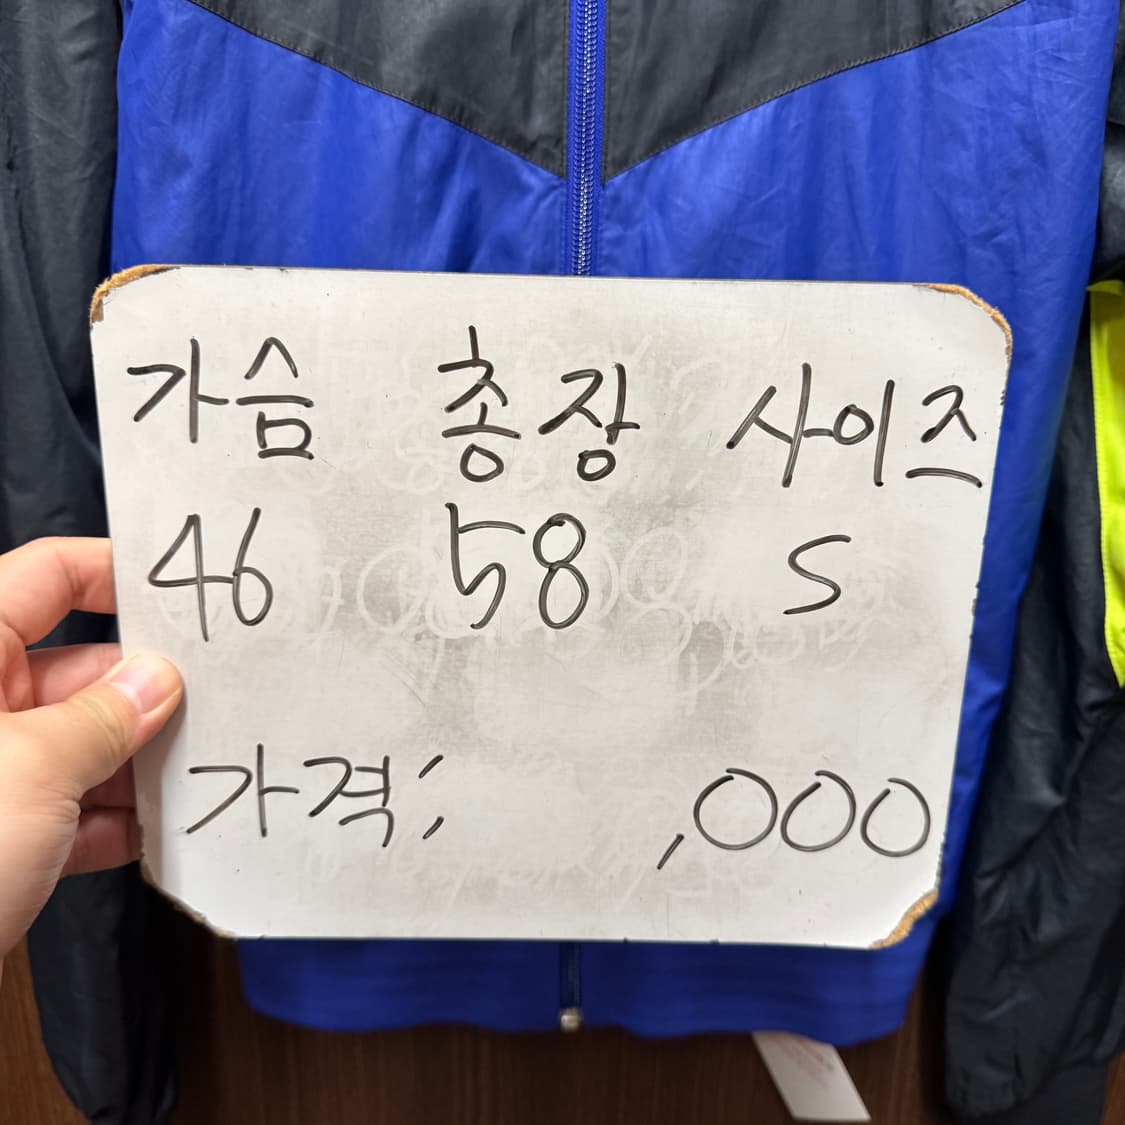 가슴 총장 사이즈
46 58 S
가격: ,000